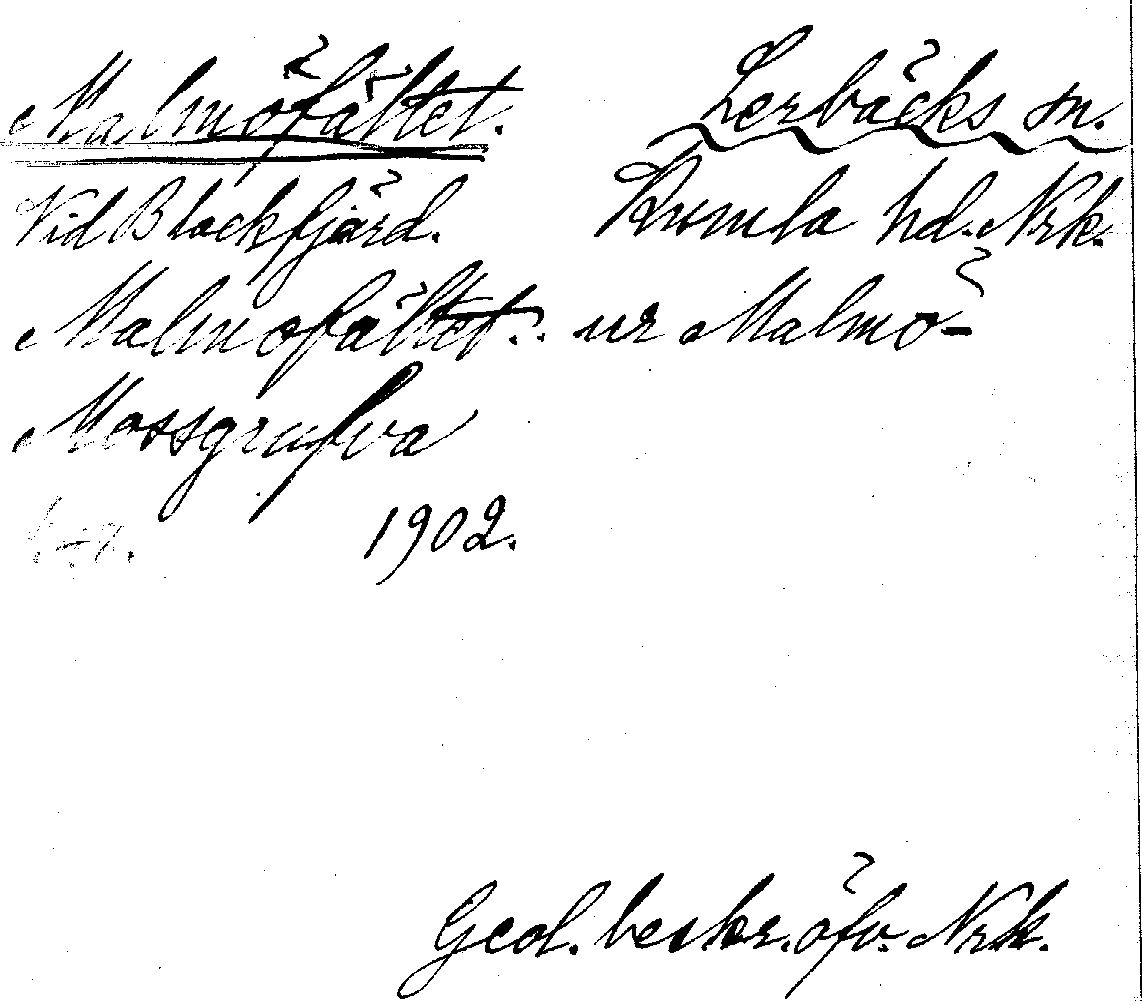 Malmöfältet. Lerbäcks sn.
Vid Bleckfjärd. Kumla hd. Nrk.
Malmöfältet: ur Malmö-
Mossgrufva
1902.
Geol. beskr. öfv. Nrk.